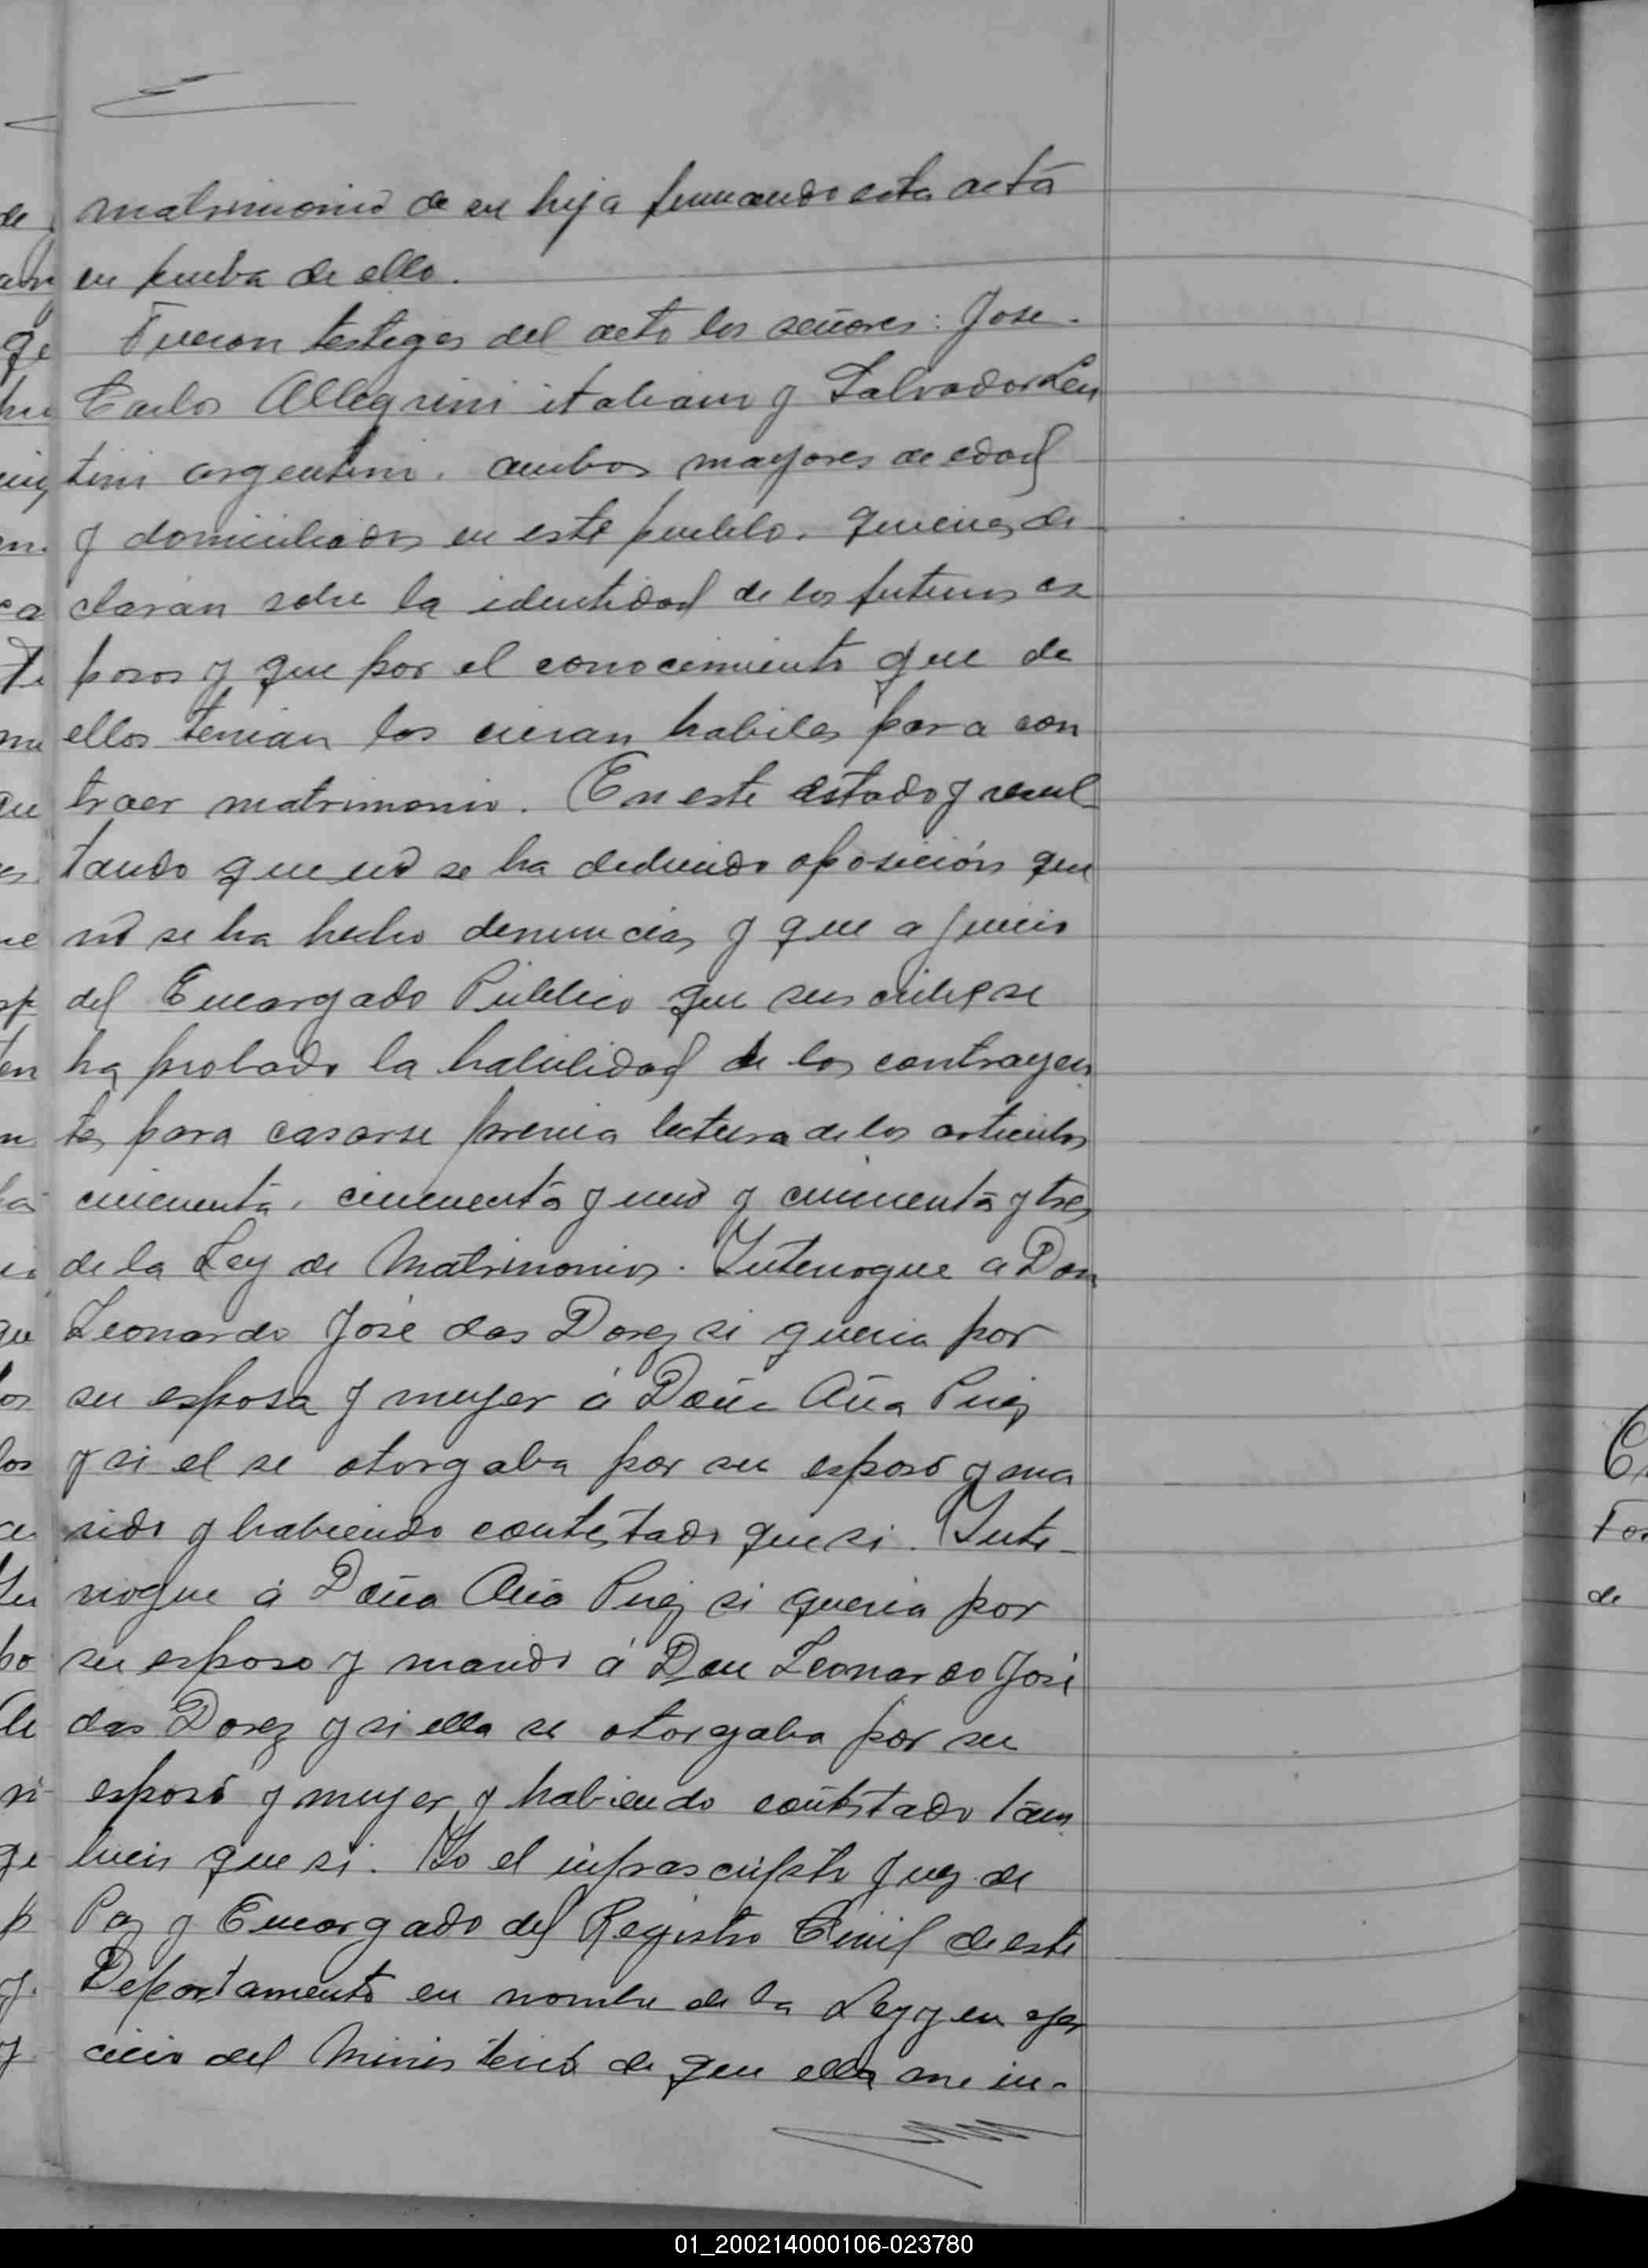 matrimonio de su hija firmando esta acta
en prueba de ello.
Fueron testigos del acto los señores: Jose
Carlos Allegrini italiano y Salvador Len
tini argentino. ambos mayores de edad
y domiciliados en este pueblo. quienes de
claran sobre la identidad de los futuros es
posos y que por el conocimiento que de
ellos tenian los creian habiles para con
traer matrimonio. En este estado y resul
tando que no se ha deducido oposición que
no se ha hecho denuncias y que a juicio
del Encargado Público que suscribe se
ha probado la habilidad de los contrayen
tes para casarse previa lectura de los articulos
cincuenta, cincuenta y uno y cincuenta y tres
de la Ley de Matrimonios. Interrogue a Don
Leonardo José das Dorez si queria por
su esposa y mujer á Doña Ana Puig
y si el se otorgaba por su esposo y ma
rido y habiendo contestado que si. Inte-
rrogue á Doña Ana Puig si queria por
su esposo y marido á Don Leonardo José
das Dorez y si ella se otorgaba por su
esposo y mujer y habiendo contestado tam
bien que si. Yo el infrascripto Juez de
Paz y Encargado del Registro Civil de este
Departamento en nombre de la Ley y en ejer
cicio del Ministerio de que ella me in-
01_200214000106-023780